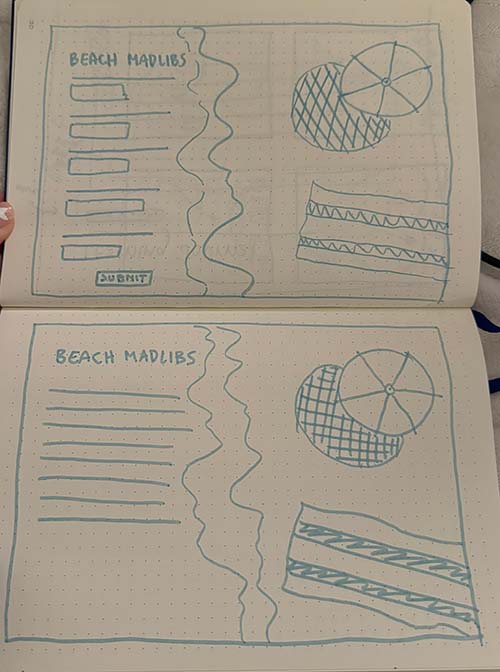 BEACH MADLIBS
SUBMIT
BEACH MADLIBS